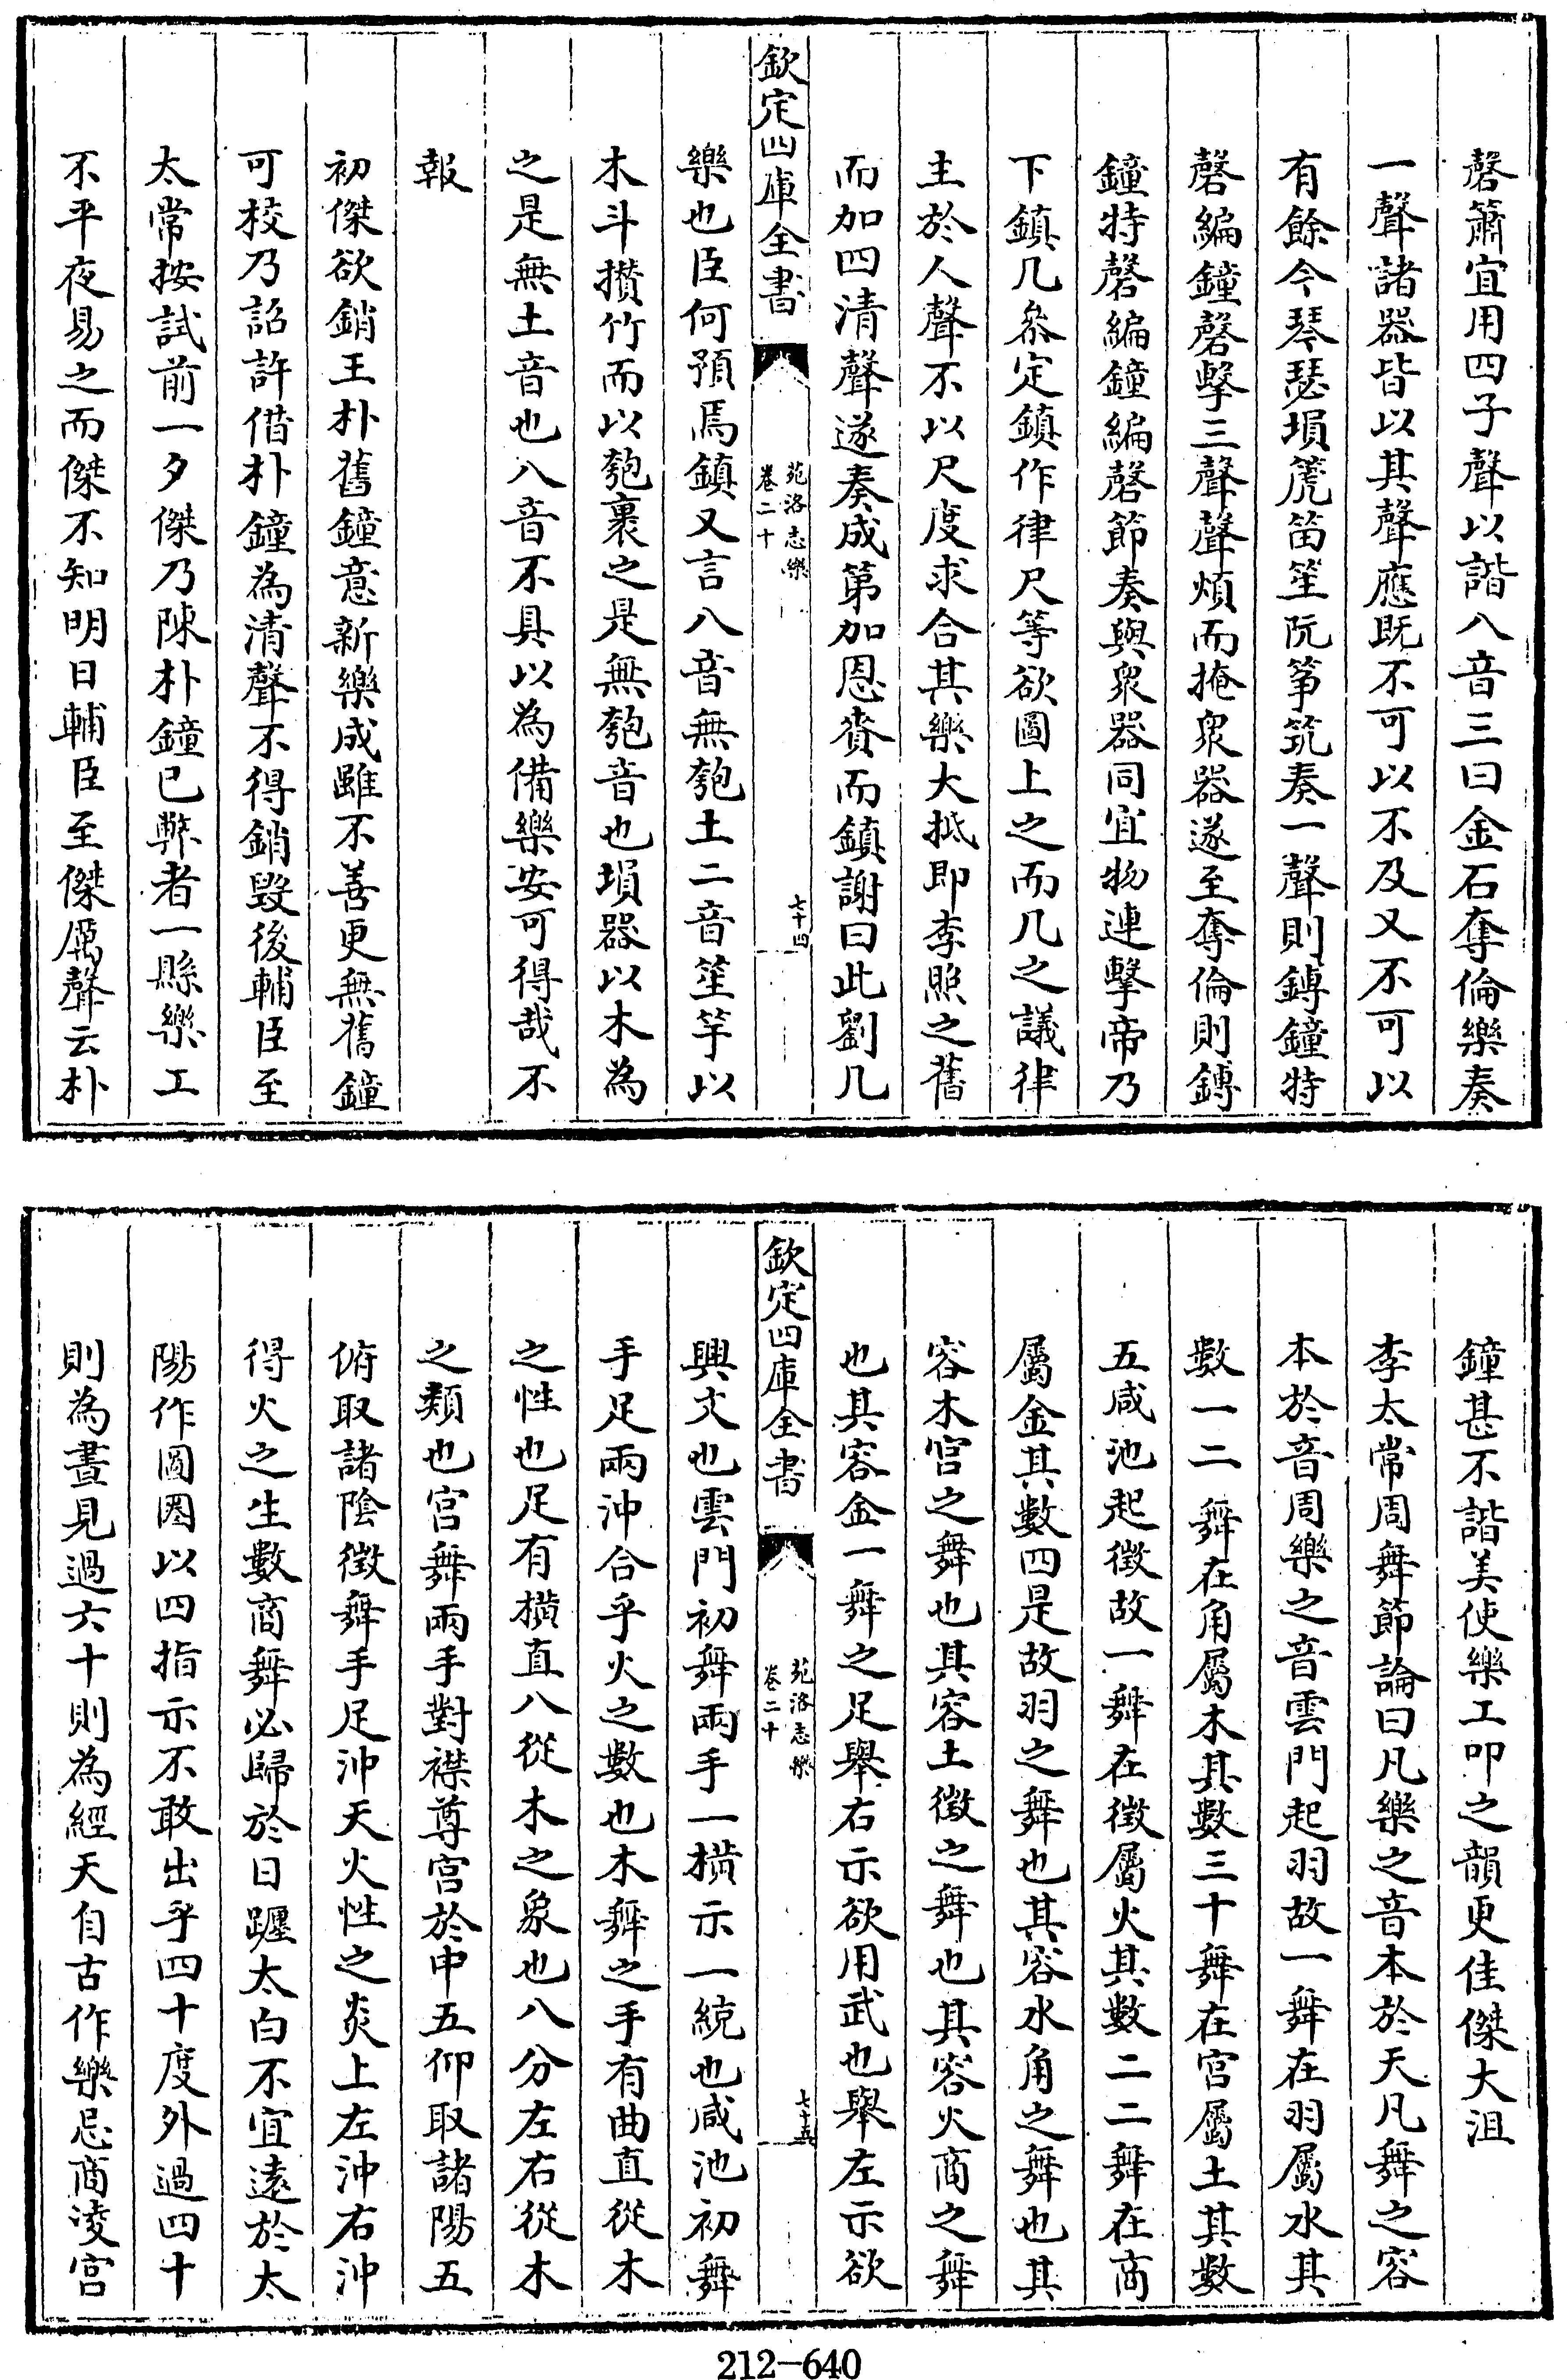 磬簫宜用四子聲以諧八音三曰金石奪倫樂奏
一聲諸器皆以其聲應既不可以不及又不可以
有餘今琴瑟塤箎笛笙阮箏筑奏一聲則鎛鐘特
磬編鐘磬擊三聲聲煩而掩衆器遂至奪倫則鎛
鐘特磬編鐘編磬節奏與衆器同宜物連擊帝乃
下鎮几叅定鎮作律尺等欲圖上之而几之議律
主於人聲不以尺度求合其樂大抵即李照之舊
而加四清聲遂奏成第加恩賚而鎮謝曰此劉几
欽定四庫全書
苑洛志樂
卷二十
七十四
樂也臣何預焉鎮又言八音無匏土二音笙竽以
木斗攢竹而以匏裹之是無匏音也塤器以木為
之是無土音也八音不具以為備樂安可得哉不
報
初傑欲銷王朴舊鐘意新樂成雖不善更無舊鐘
可校乃詔許借朴鐘為清聲不得銷毀後輔臣至
太常按試前一夕傑乃陳朴鐘已弊者一縣樂工
不平夜易之而傑不知明日輔臣至傑厲聲云朴
鐘甚不諧美使樂工叩之韻更佳傑大沮
李太常周舞節論曰凡樂之音本於天凡舞之容
本於音周樂之音雲門起羽故一舞在羽屬水其
數一二舞在角屬木其數三十舞在宫屬土其數
五咸池起徵故一舞在徵屬火其數二二舞在商
屬金其數四是故羽之舞也其容水角之舞也其
容木宫之舞也其容土徵之舞也其容火商之舞
也其容金一舞之足舉右示欲用武也舉左示欲
欽定四庫全書
苑洛志樂
卷二十
七十五
興文也雲門初舞兩手一橫示一統也咸池初舞
手足兩沖合乎火之數也木舞之手有曲直從木
之性也足有橫直八從木之象也八分左右從木
之類也宫舞兩手對襟尊宫於中五仰取諸陽五
俯取諸陰徵舞手足沖天火性之炎上左沖右沖
得火之生數商舞必歸於日躔太白不宜遠於太
陽作圓圏以四指示不敢出乎四十度外過四十
則為晝見過六十則為經天自古作樂忌商淩宫
212-640